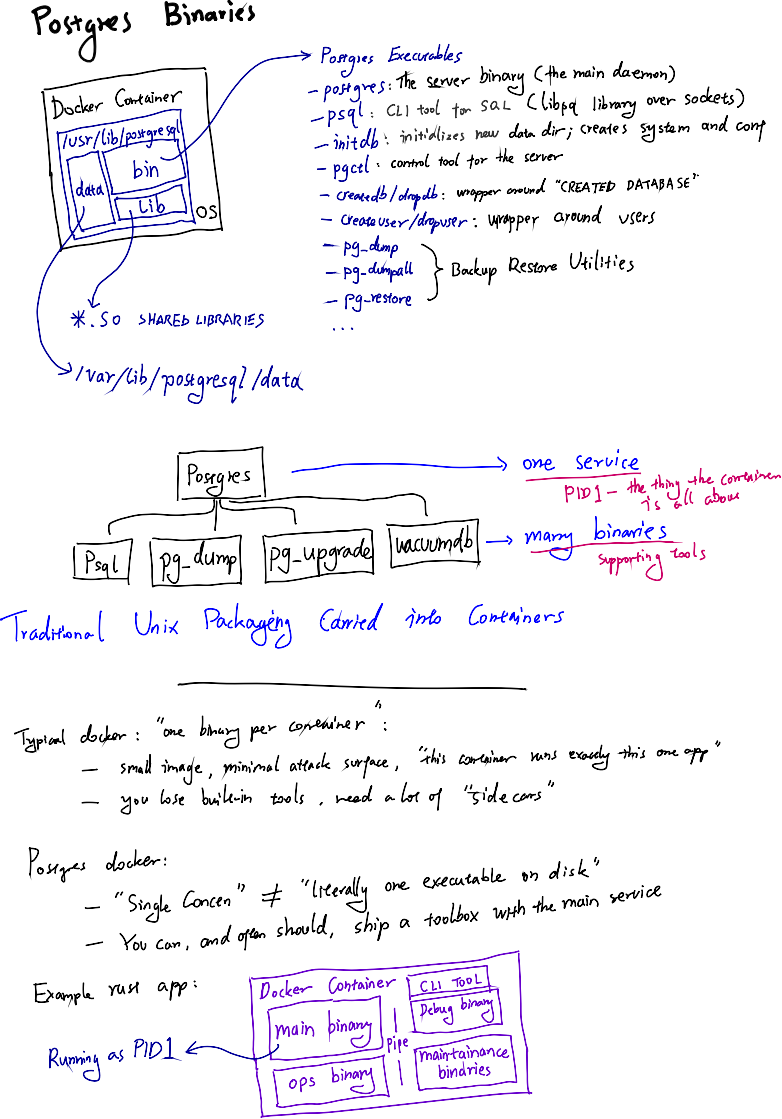 Postgres Binaries
Docker Container
/usr/lib/postgresql
data
bin
Lib
OS
*.SO SHARED LIBRARIES
/var/lib/postgresql/data
Postgres Executables
- postgres: The server binary (the main daemon)
- psql: CLI tool for SQL (libpq library over sockets)
- initdb: initializes new data dir; creates system and conf
- pgctl: control tool for the server
- createdb/dropdb: wrapper around "CREATED DATABASE"
- createuser/dropuser: wrapper around users
- pg_dump
- pg_dumpall
- pg_restore
Backup Restore Utilities
...
Postgres
one service
PID1 - the thing the container
is all about
Psql
pg_dump
pg_upgrade
vacuumdb
many binaries
supporting tools
Traditional Unix Packaging Carried into Containers
Typical docker: "one binary per container":
- small image, minimal attack surface, "this container runs exactly this one app"
- you lose built-in tools, need a lot of "side cars"
Postgres docker:
- "Single Concen" ≠ "literally one executable on disk"
- You can, and often should, ship a toolbox with the main service
Example rust app:
Docker Container
CLI TOOL
Debug binary
main binary
Pipe
ops binary
maintainance
bindries
Running as PID1